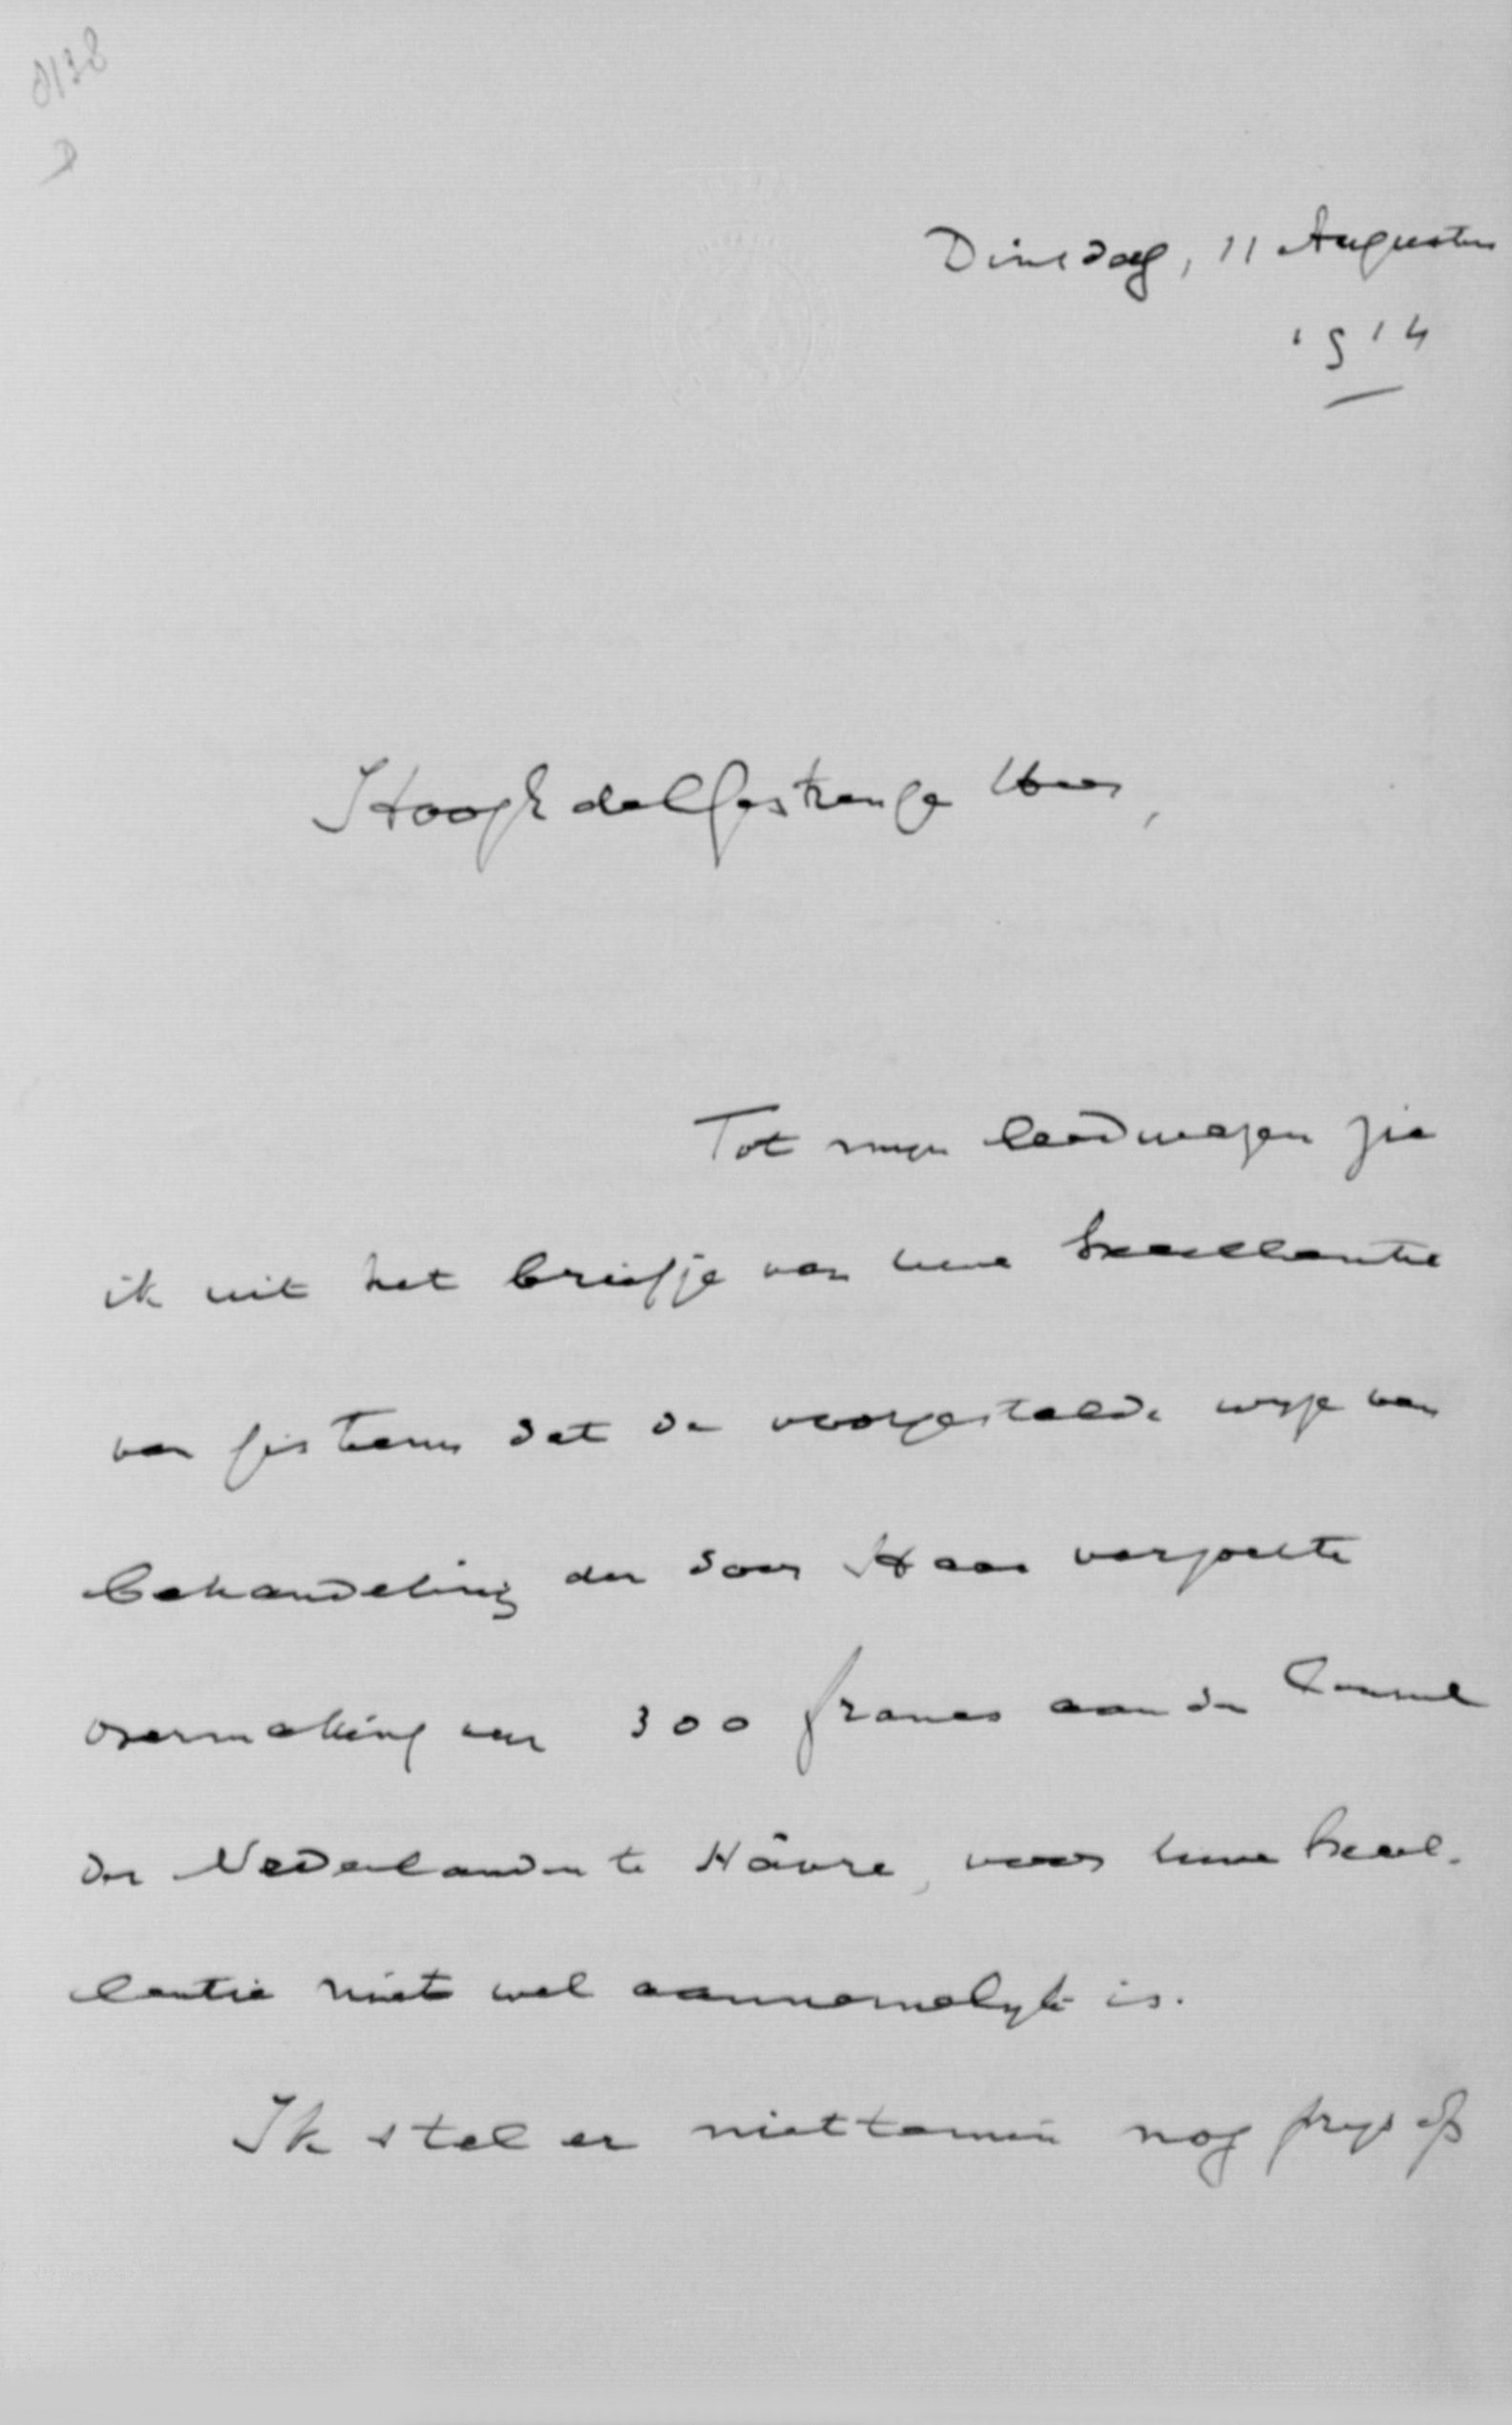 8138
D
Dinsdag, 11 Augustus
1914
HoogEdelGestrenge Heer,
Tot mijn leedwezen zie
ik uit het briefje van Uwe Excellentie
van gisteren dat de voorgestelde wijze van
behandeling der door Haar verzochte
overmaking van 300 francs aan den Consul
der Nederlanden te Hâvre, voor Uwe Excel-
lentie niet wel aannemelijk is.
Ik stel er niettemin nog prijs op